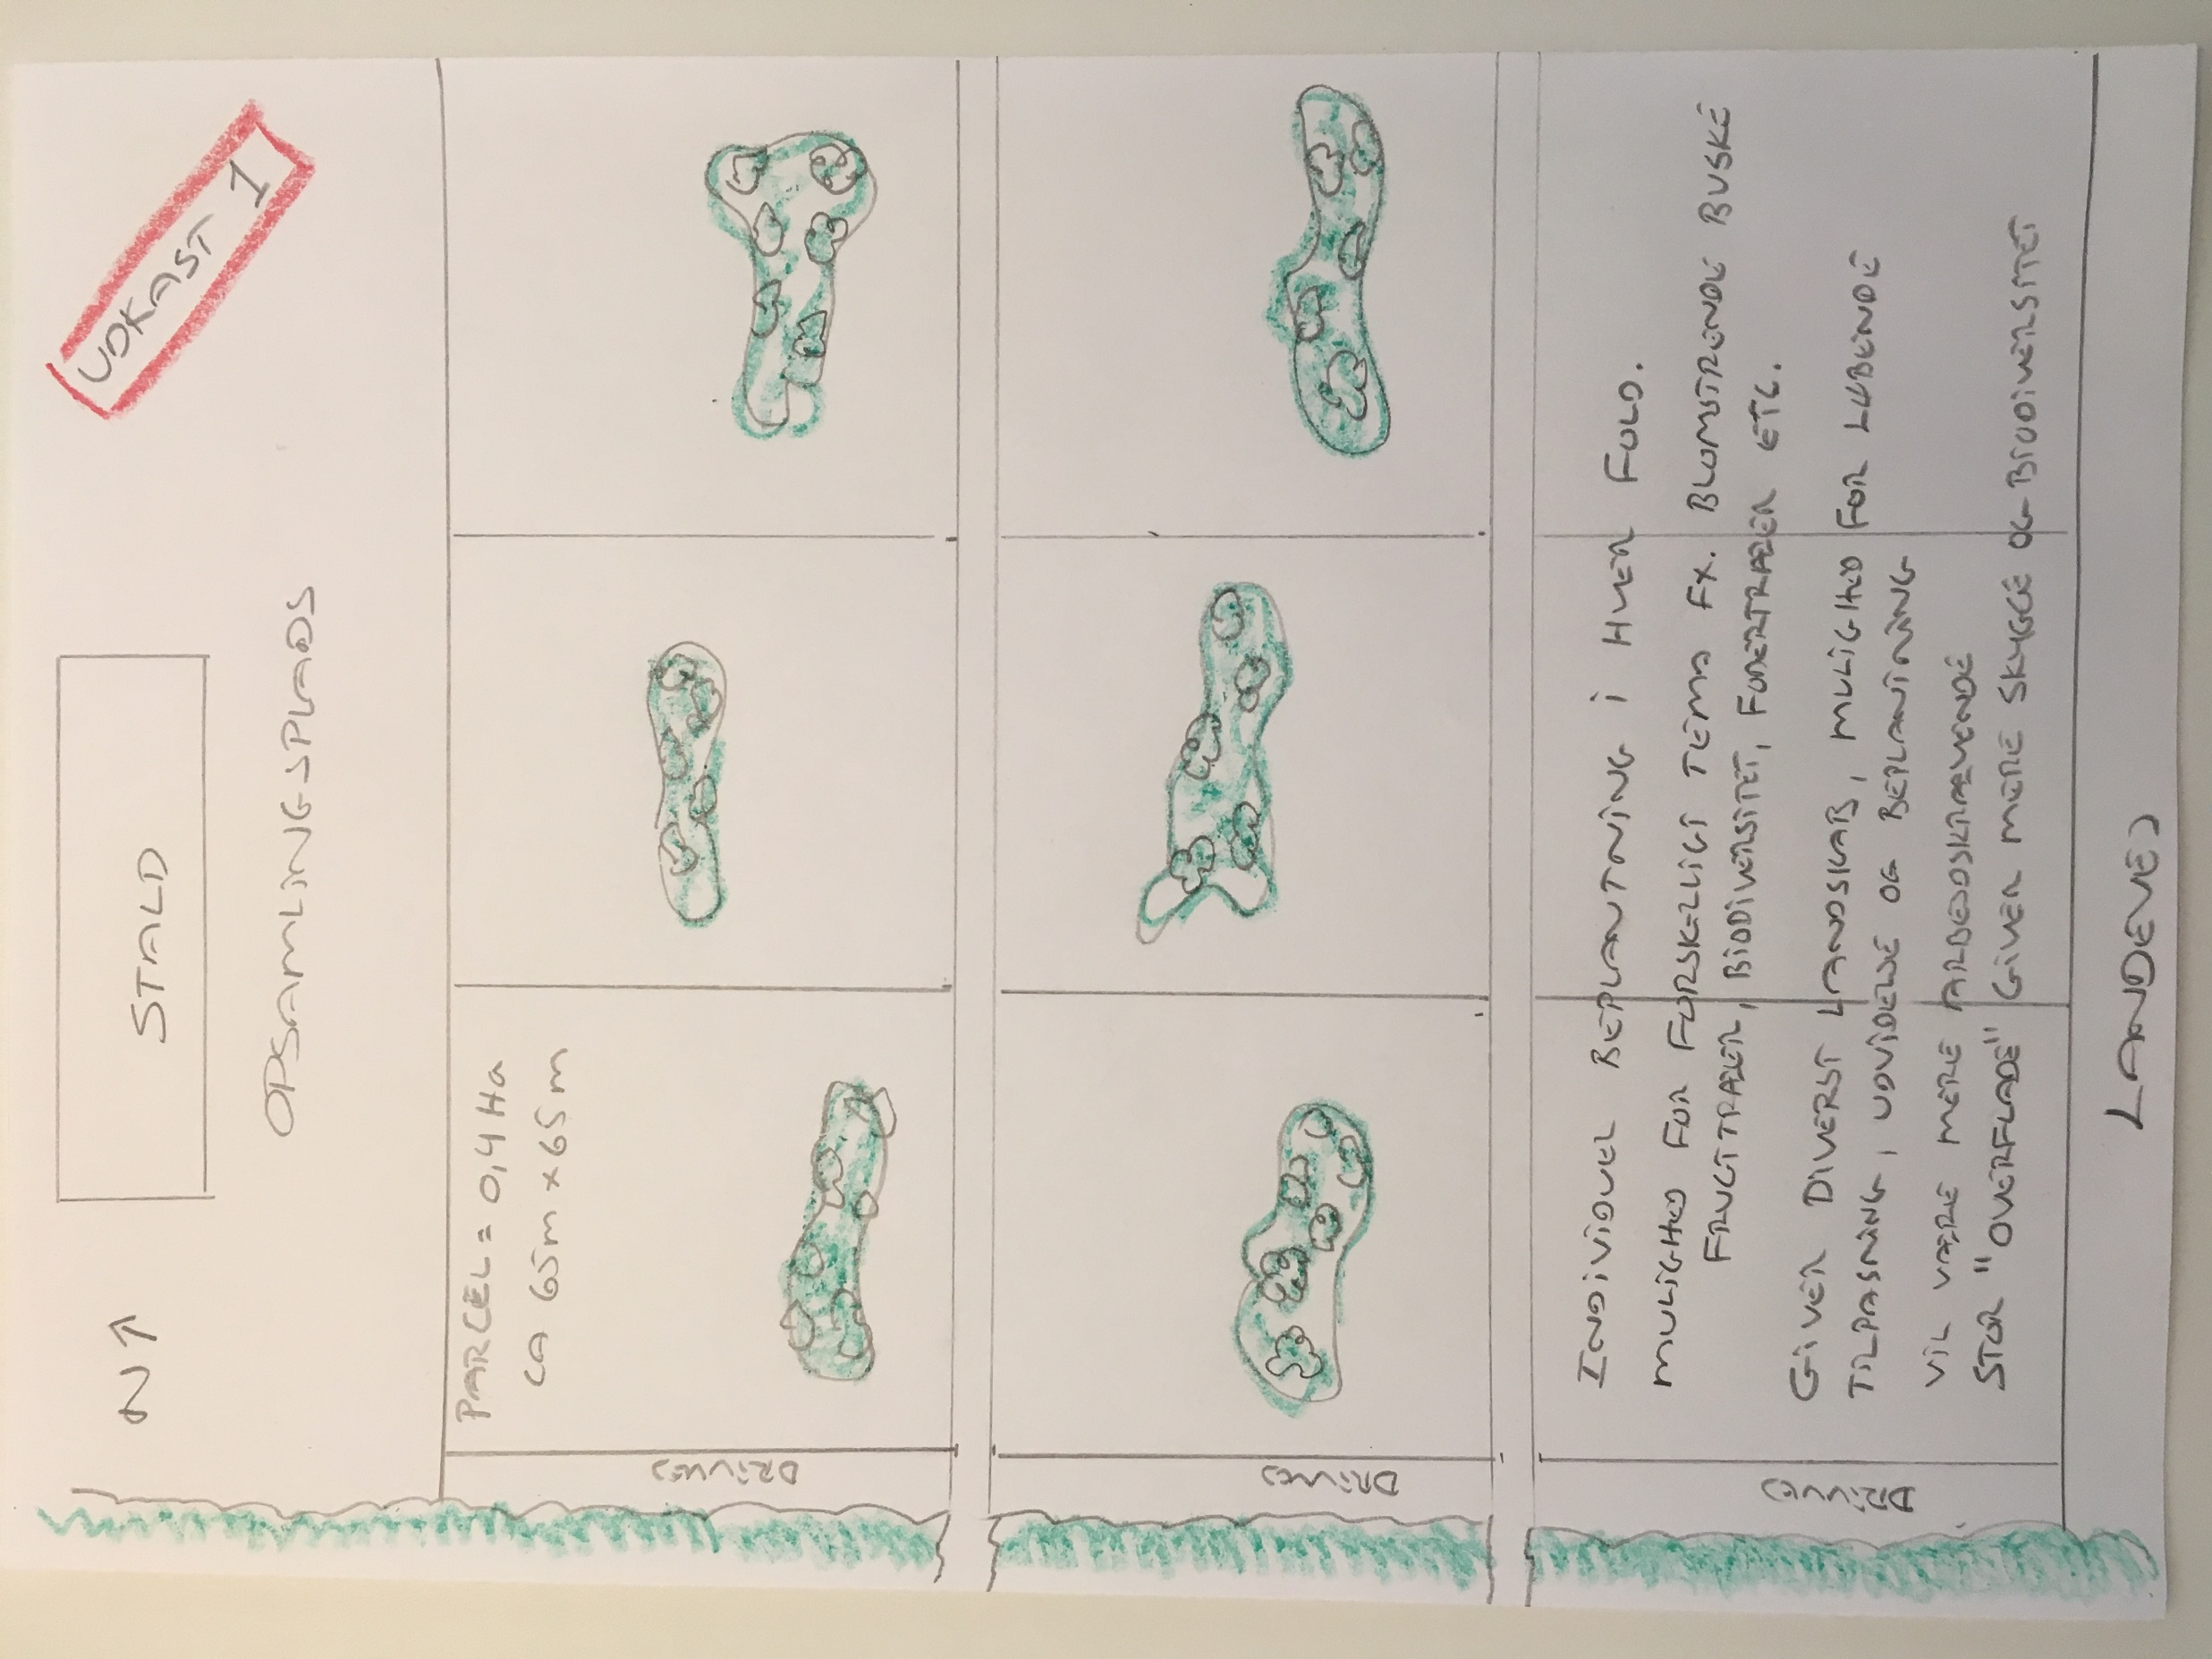 UDKAST 1
N↑
STALD
OPSAMLINGSPLADS
PARCEL = 0,4 Ha
ca 65m x 65m
DRIVVEJ
DRIVVEJ
INDIVIDUEL BEPLANTNING i HVER FOLD.
MULIGHED FOR FORSKELLIGT TEMA FX. BLOMSTRENDE BUSKE
FRUGTTRÆER, BIODIVERSITET, FODERTRÆER ETC.
GIVER DIVERST LANDSKAB, MULIGHED FOR LØBENDE
TILPASNING, UDVIDELSE OG BEPLANTNING
VIL VÆRE MERE ARBEJDSKRÆVENDE
STOR "OVERFLADE" GIVER MERE SKYGGE OG BIODIVERSITET
DRIVVEJ
LANDEVEJ